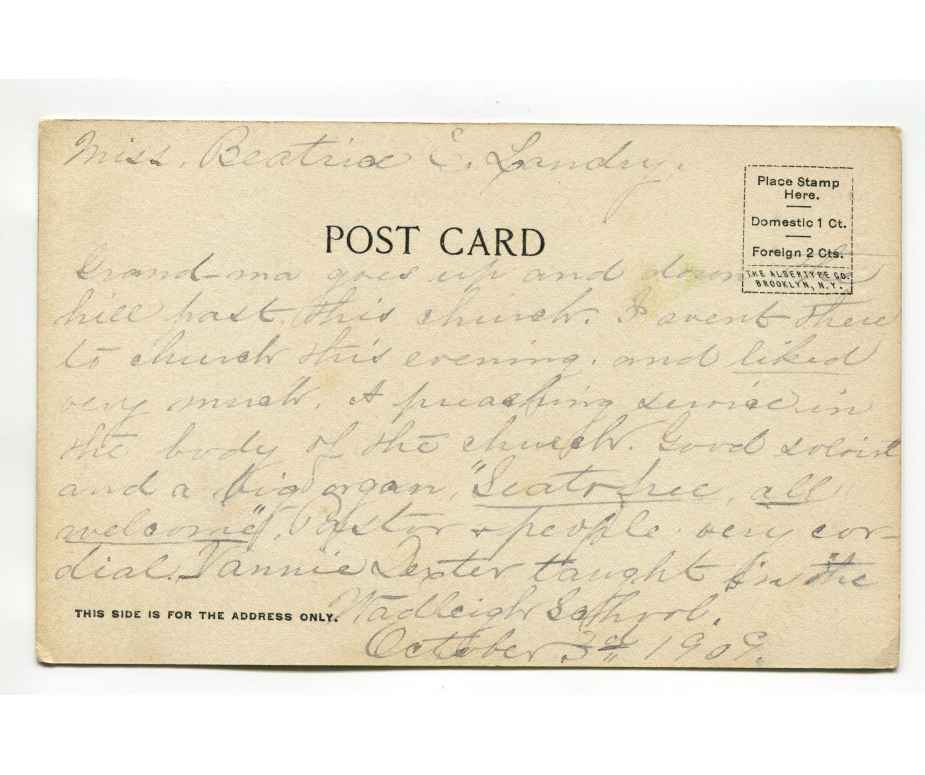 Miss. Beatrice E. Landry.
Place Stamp
Here.
Domestic 1 Ct.
Foreign 2 Cts.
THE ALBERTYPE CO.
BROOKLYN, N.Y.
POST CARD
Grand-ma goes up and down the
hill past this church. I went there
to church this evening. and liked
very much. A preaching service in
the body of the church. Good soloist
and a big organ, "Seats free, all
welcome". Pastor & people very cor-
dial. Fannie Dexter taught in the
Wadleigh School.
October 3rd, 1909.
THIS SIDE IS FOR THE ADDRESS ONLY.